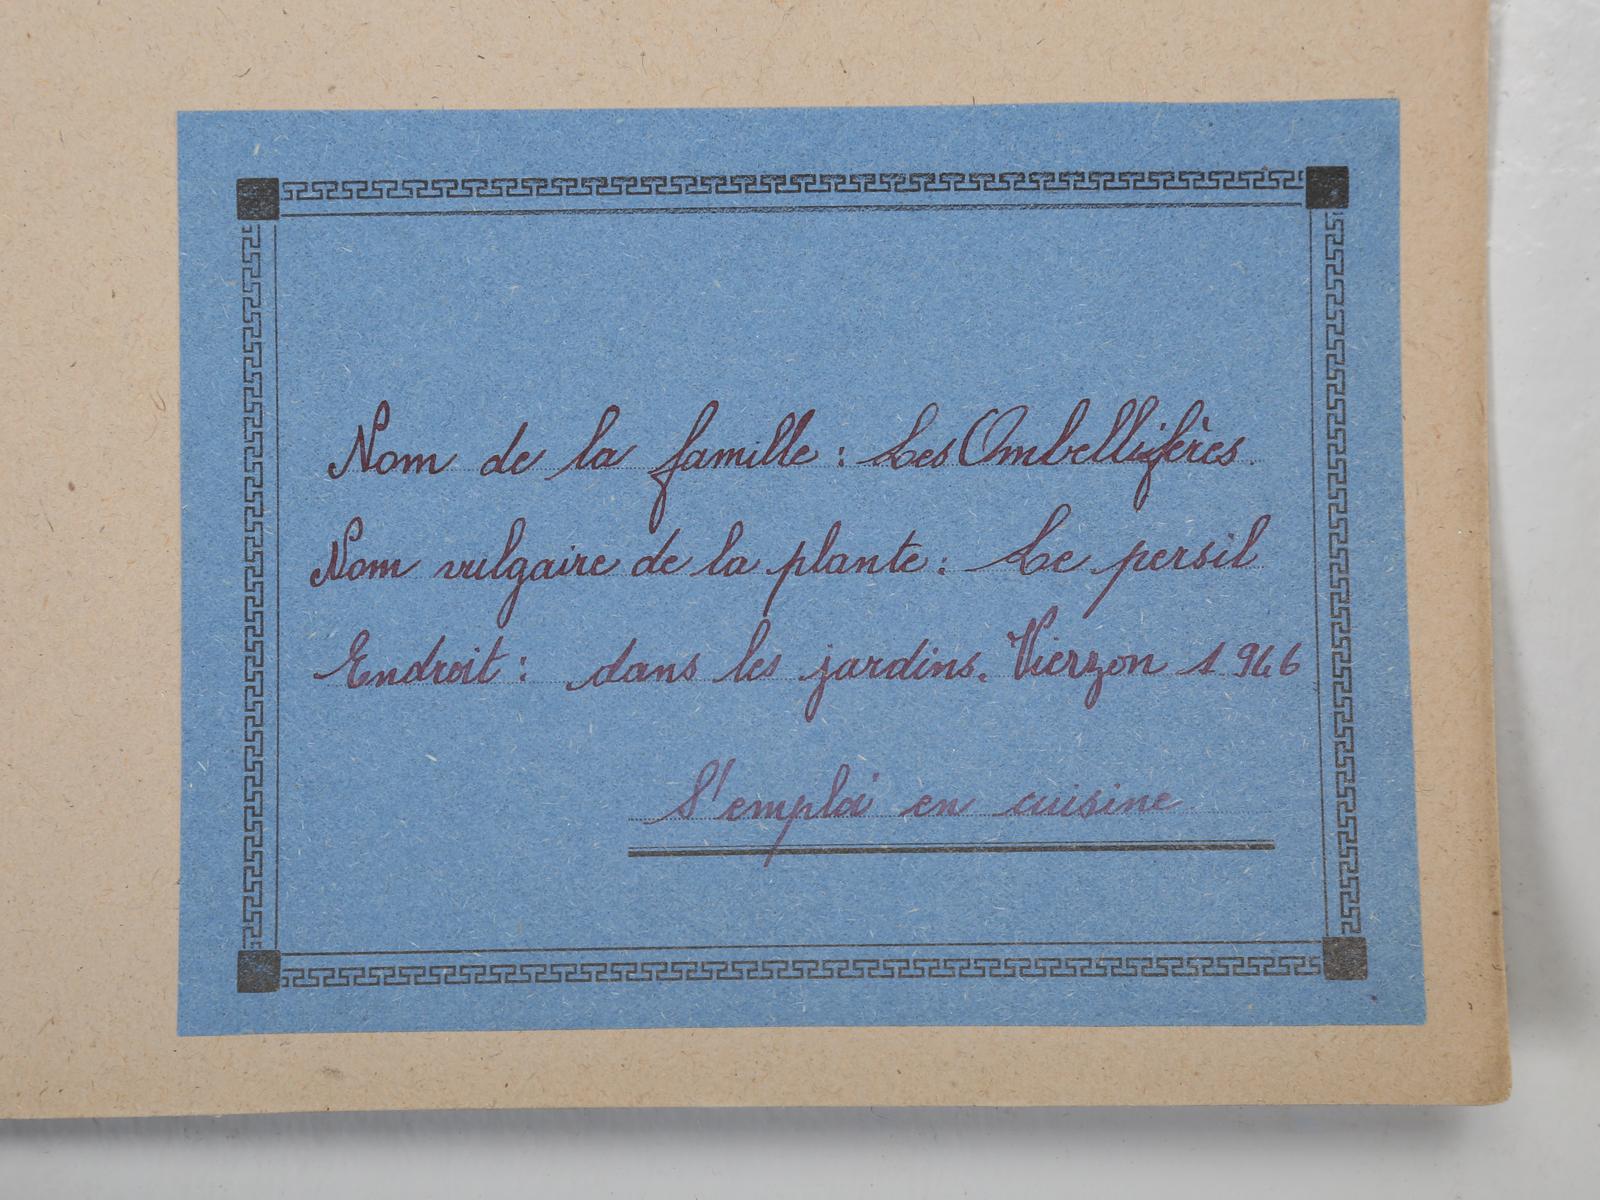 Nom de la famille : Les Ombellifères
Nom vulgaire de la plante : Le persil
Endroit : dans les jardins. Vierzon 1946
S'emploi en cuisine